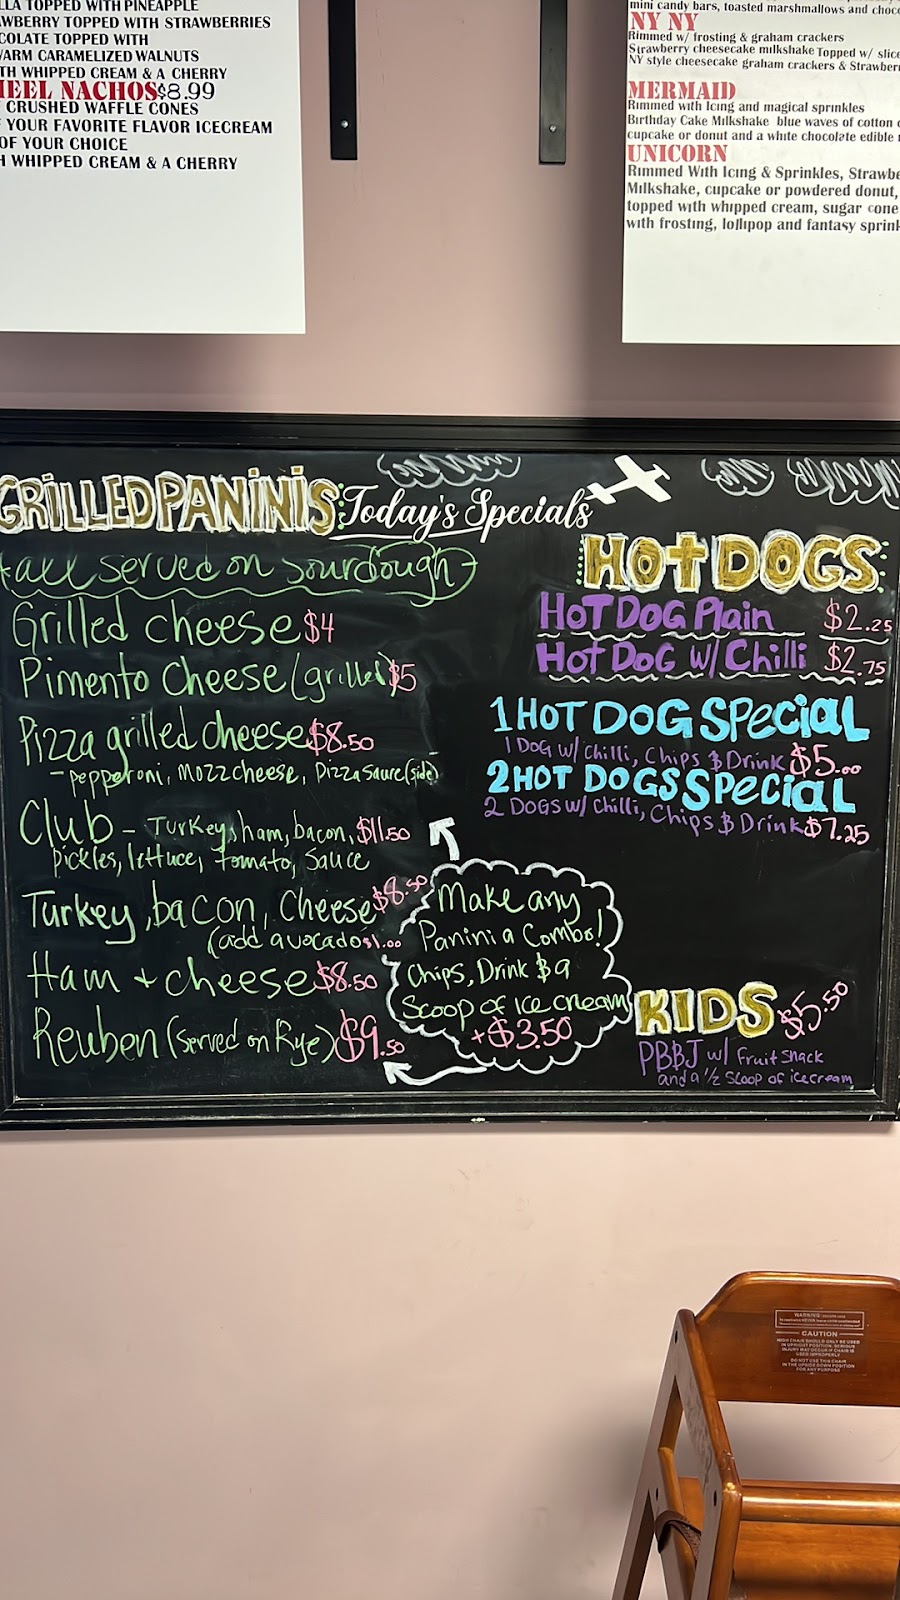 LLA TOPPED WITH PINEAPPLE
AWBERRY TOPPED WITH STRAWBERRIES
COLATE TOPPED WITH
WARM CARAMELIZED WALNUTS
TH WHIPPED CREAM & A CHERRY
HEEL NACHOS $8.99
F CRUSHED WAFFLE CONES
F YOUR FAVORITE FLAVOR ICECREAM
OF YOUR CHOICE
H WHIPPED CREAM & A CHERRY
mini candy bars, toasted marshmallows and choc
NY NY
Rimmed w/ frosting & graham crackers
Strawberry cheesecake milkshake Topped w/ slice
NY style cheesecake graham crackers & Strawber
MERMAID
Rimmed with Icing and magical sprinkles
Birthday Cake Milkshake blue waves of cotton c
cupcake or donut and a white chocolate edible
UNICORN
Rimmed With Icing & Sprinkles, Strawbe
Milkshake, cupcake or powdered donut,
topped with whipped cream, sugar cone
with frosting, lollipop and fantasy sprink
GRILLED PANINIS
Today's Specials
all served on sourdough
Grilled cheese $4
Pimento Cheese (grilled) $5
Pizza grilled cheese $8.50
- pepperoni, mozz cheese, Pizza sauce (side)
Club - Turkey, ham, bacon, $11.50
pickles, lettuce, tomato, sauce
Turkey, bacon, Cheese $8.50
(add avocado $1.00
Ham + cheese $8.50
Reuben (served on Rye) $9.50
Make any
Panini a Combo!
Chips, Drink & a
Scoop of ice cream
+ $3.50
HOT DOGS
HOT DOG Plain $2.25
HOT DOG W/ Chilli $2.75
1 HOT DOG SPECIAL
1 DOG W/ Chilli, Chips & Drink $5.00
2 HOT DOGS SPECIAL
2 DOGS W/ Chilli, Chips & Drink $7.25
KIDS $5.50
PB&J w/ Fruit snack
and a 1/2 Scoop of icecream
WARNING
CAUTION
HIGH CHAIR SHOULD ONLY BE USED
IN UPRIGHT POSITION. SERIOUS
INJURY MAY OCCUR IF CHAIR IS
USED IMPROPERLY
DO NOT USE THIS CHAIR
IN THE UPSIDE DOWN POSITION
FOR ANY PURPOSE